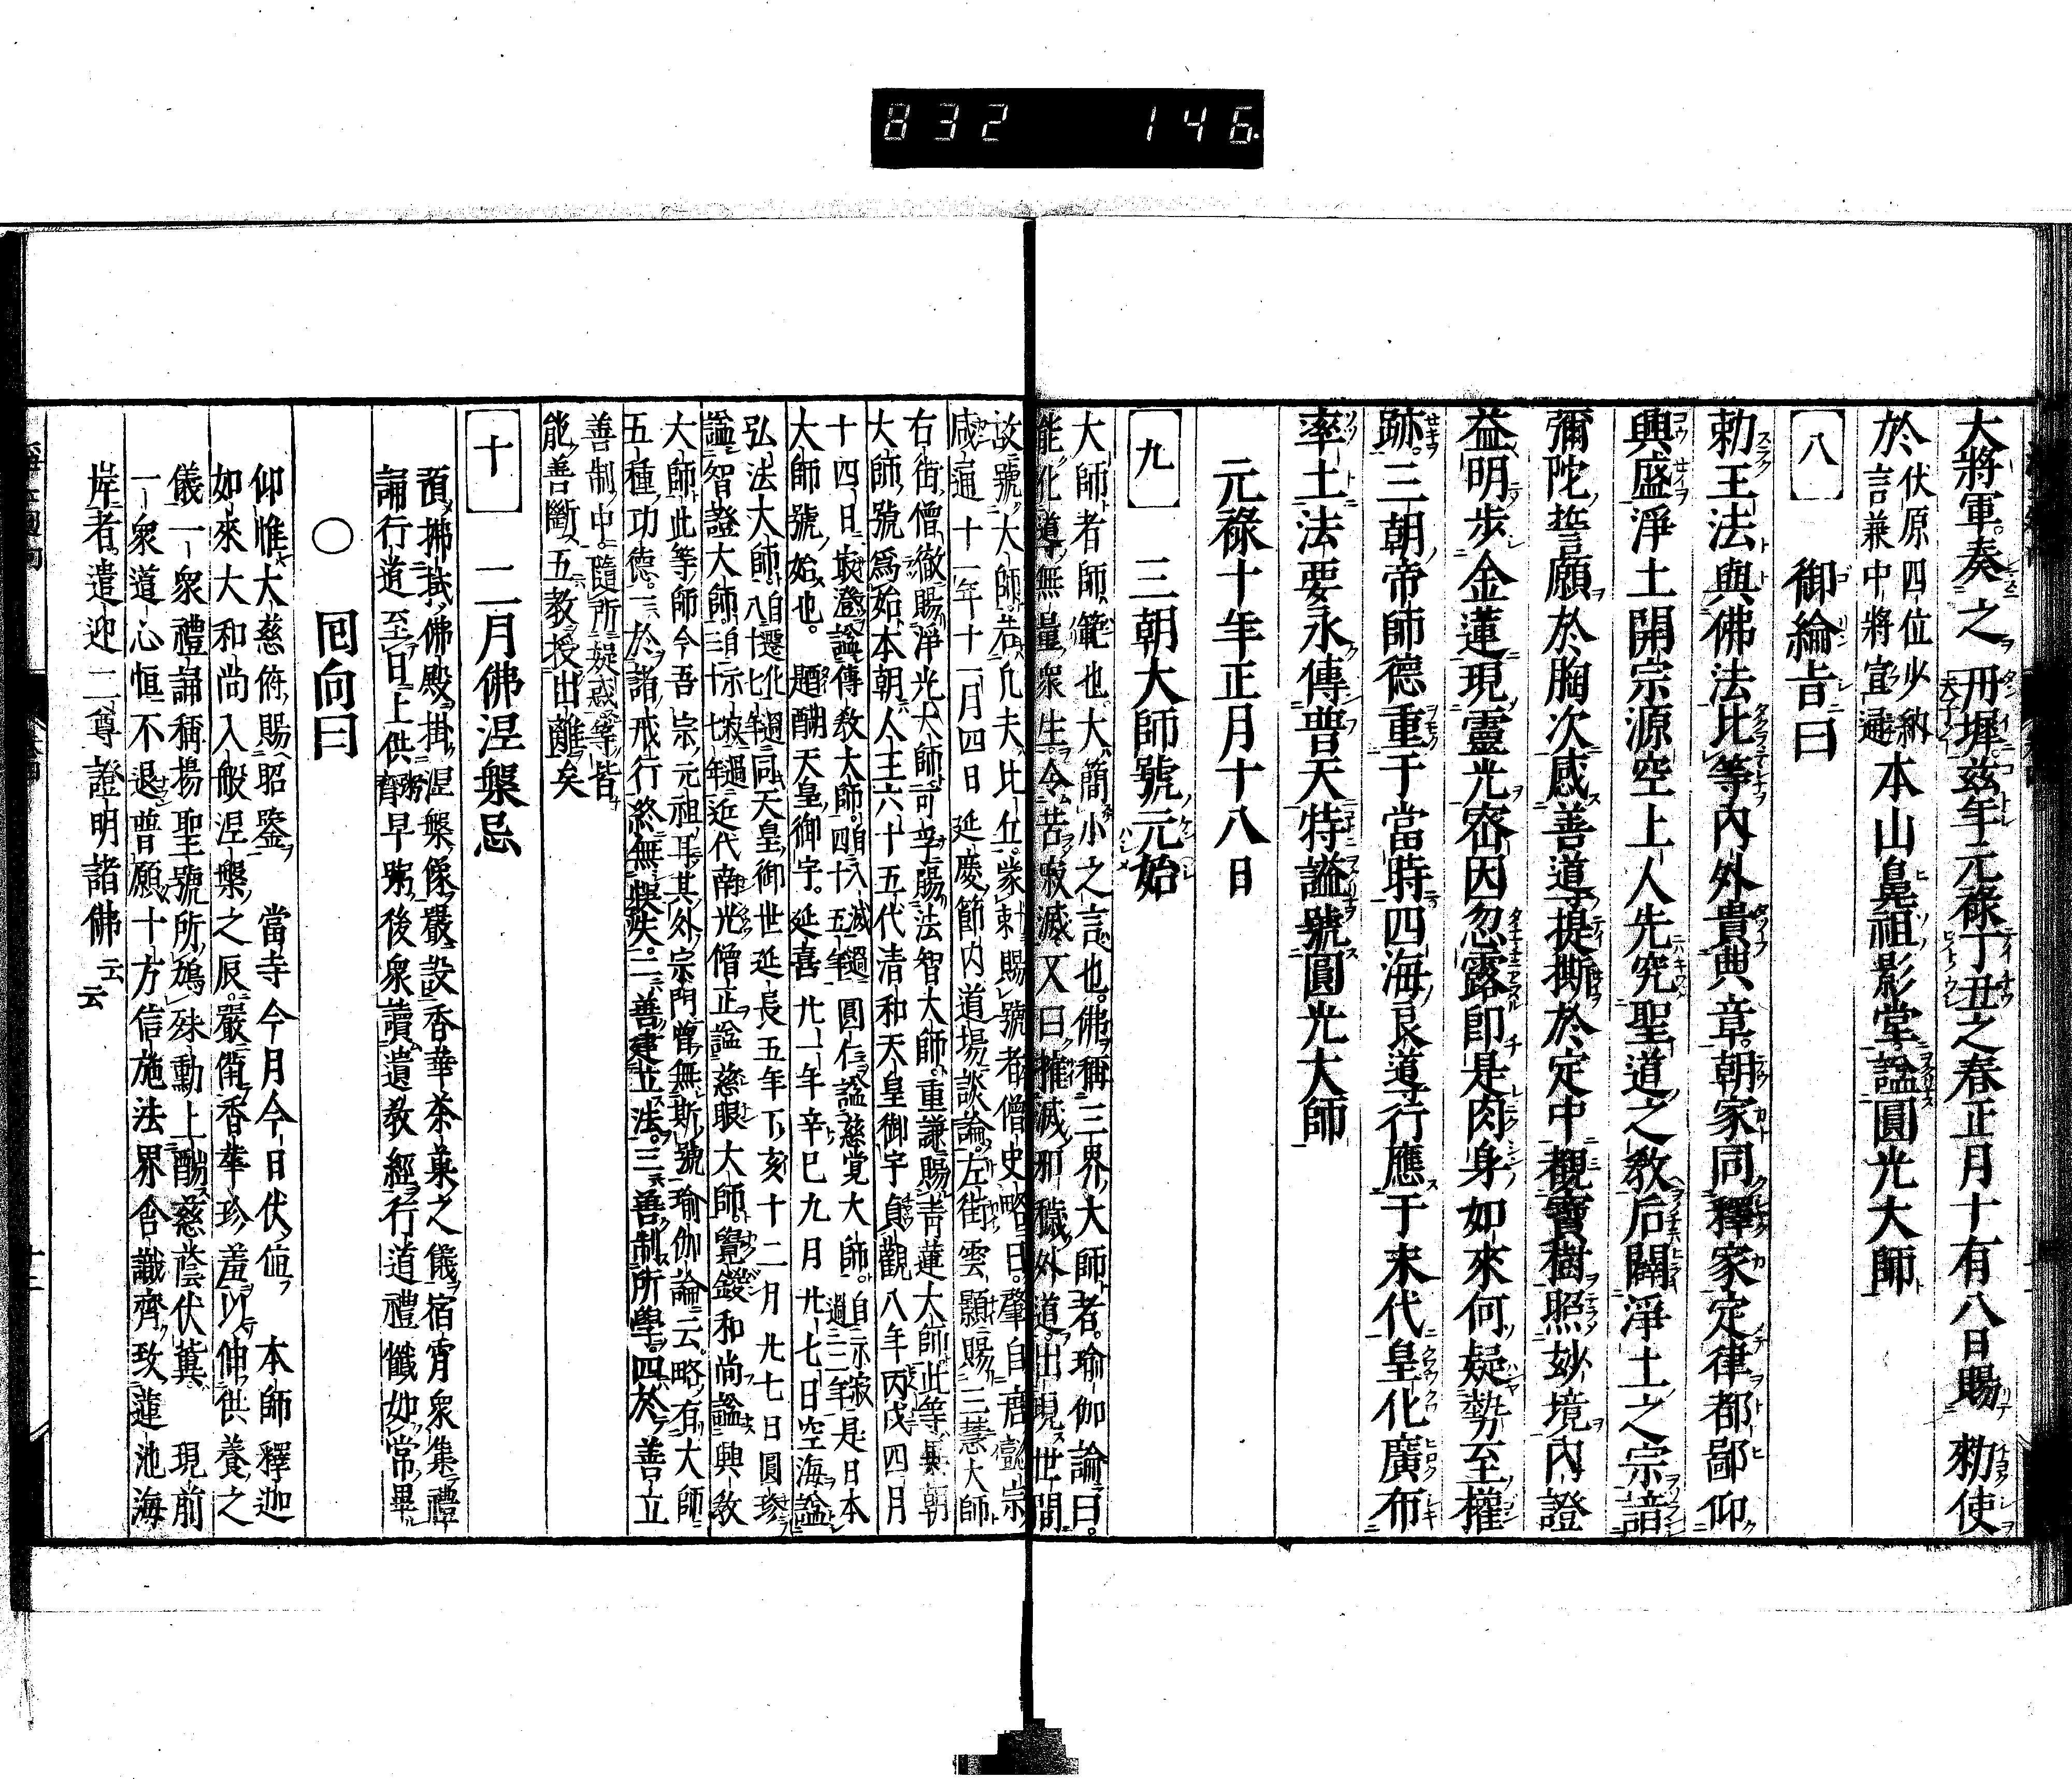 832 146
大將軍。奏之丹墀。玆年元祿丁丑之春正月十有八日賜 勅使
於伏原四位少納
言兼中將宣通本山皇祖影堂。諡圓光大師
八 御綸旨曰
勅王法與佛法比等內外貴典章。朝家同釋家定律都鄙仰
興盛淨土開宗源空上人先究聖道之敎后闢淨土之宗諳
彌陀誓願於胸次感善導提撕於定中觀寶樹照妙境內證
益明步金蓮現靈光密因忽露卽是肉身如來何疑勢至權
跡。三朝帝師德重于當時四海良導行應于末代皇化廣布
率土法要永傳普天特謚號圓光大師
元祿十年正月十八日
九 三朝大師號元始
大師者師範也大簡小之言也。佛稱三界大師者。瑜伽論曰。
能化導無量衆生令苦寂滅又曰摧滅邪穢外道出現世間
故號大師。若凡夫比丘蒙勅賜號者僧史略曰。肇自唐懿宗
咸通十一年十一月四日延慶節內道場談論。左街雲顥賜三慧大師
右街僧徹賜淨光大師可孚賜法智大師重謙賜靑蓮大師此等異朝
大師號爲始本朝人王六十五代淸和天皇御宇貞觀八年丙戌四月
十四日最澄諡傳敎大師。自入滅過四十五年圓仁諡慈覺大師。自示寂過三年是日本
大師號始也。醍醐天皇御宇。延喜廿一年辛巳九月廿七日空海諡
弘法大師。自遷化過八十七年同天皇御世延長五年丁亥十二月廿七日圓珍
諡智證大師。自示寂過三十七年近代南光僧正諡慈眼大師覺鑁和尚諡興敎
大師此等師今吾宗元祖耳其外宗門曾無斯號瑜伽論云。略有大師
五種功德。一於諸戒行終無悞失。二善建立法。三善制所學。四於善立
善制中。隨所疑惑等皆
能善斷五敎授出離矣
十 二月佛涅槃忌
預拂拭佛殿掛涅槃像嚴設香華茶菓之儀宿宵衆集禮
誦行道至日上供粥齊早粥後衆讀遺敎經行道禮懺如常畢
〇 囘向曰
仰惟大慈俯賜昭鑒 當寺今月今日伏値 本師釋迦
如來大和尚入般涅槃之辰。嚴備香華珍羞以伸供養之
儀一衆禮誦稱揚聖號所鳩殊勳上酬慈蔭伏冀 現前
一衆道心恒不退普願十方信施法界含識齊致蓮池海
岸者。遣迎二尊證明諸佛云云